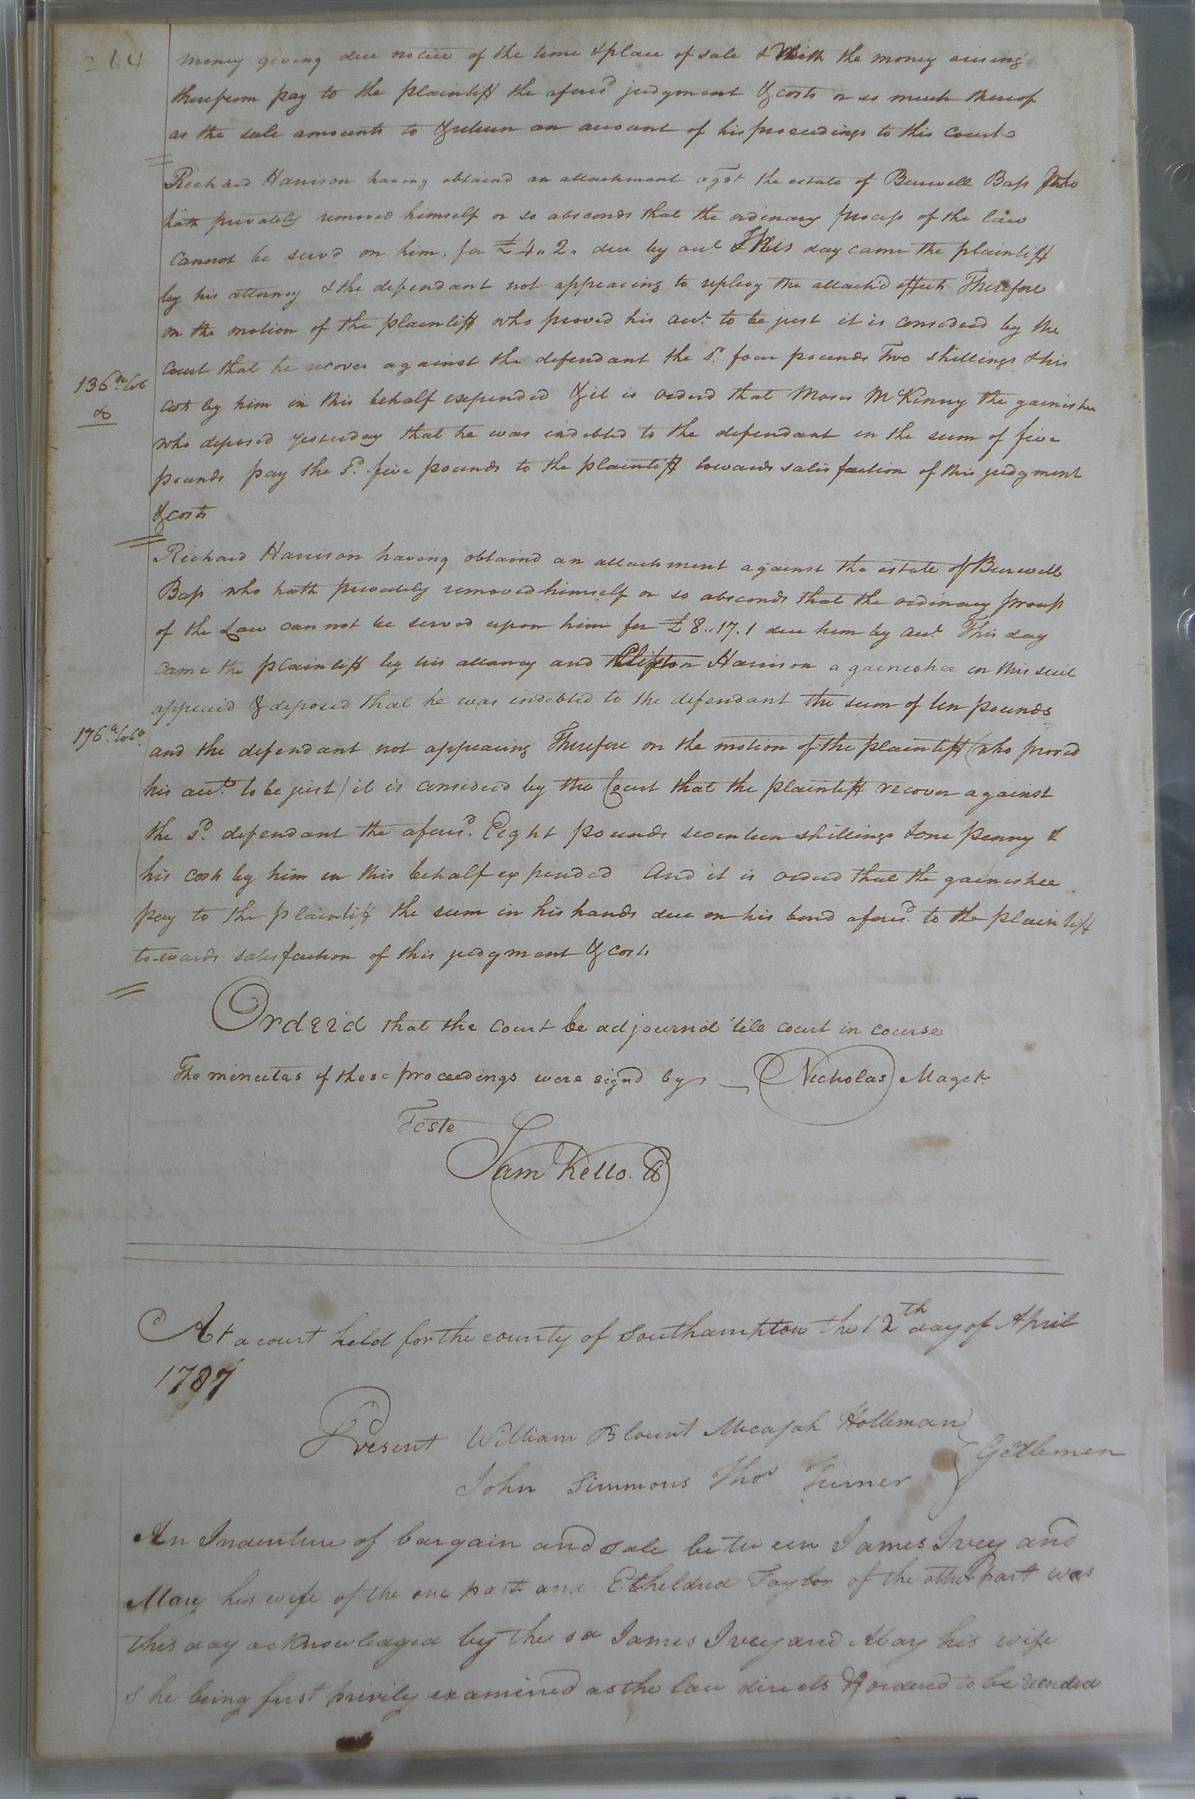 264
money giving due notice of the time & place of sale & With the money arising
therefrom pay to the plaintiff the afores.d judgment & costs or so much thereof
as the sale amounts to & return an account of his proceedings to this Court
Richard Harrison having obtaind an attachment agst the estate of Burwell Bass who
hath privately removed himself or so absconds that the ordinary process of the law
cannot be servd on him. for £4.. 2. due by acct. This day came the plaintiff
by his attorney & the defendant not appearing to replevy the attachd effects Therefore
on the motion of the plaintiff who proved his acct. to be just it is considerd by the
Court that he recover against the defendant the sd. four pounds Two shillings & his
136 lb Tob
&
costs by him in this behalf expended & it is orderd that Moses McKinny the garnishee
who deposed yesterday that he was indebted to the defendant in the sum of five
pounds pay the sd. five pounds to the plaintiff towards satisfaction of this judgment
& costs
Richard Harrison having obtaind an attachment against the estate of Burwell
Bass who hath privately removed himself or so absconds that the ordinary process
of the Law cannot be served upon him for £8..17.1 due him by acct. This day
came the plaintiff by his attorney and Clifton Harrison a garneshee in this suit
appeard & deposed that he was indebted to the defendant the sum of ten pounds
176 lb Tobo
and the defendant not appearing Therefore on the motion of the plaintiff (who proved
his acct. to be just) it is considerd by the Court that the plaintiff recover against
the sd. defendant the afores.d Eight pounds seventeen shillings & one penny &
his costs by him in this behalf expended And it is orderd that the garneshee
pay to the plaintiff the sum in his hands due on his bond afores.d to the plaintiff
towards satisfaction of this judgment & costs
Orderd that the court be adjournd 'till court in course
The minutes of these proceedings were signd by Nicholas Maget
Teste
Saml Kello. CC
At a court held for the county of Southampton the 12th day of April
1787
Present William Blount Micajah Holleman
John Simmons Thos Turner } Gentlemen
An Indenture of bargain and sale between James Ivey and
Mary his wife of the one part and Etheldred Taylor of the other part was
this day acknowledged by the sd James Ivey and Mary his wife
she being first privily examined as the law directs & ordered to be recorded